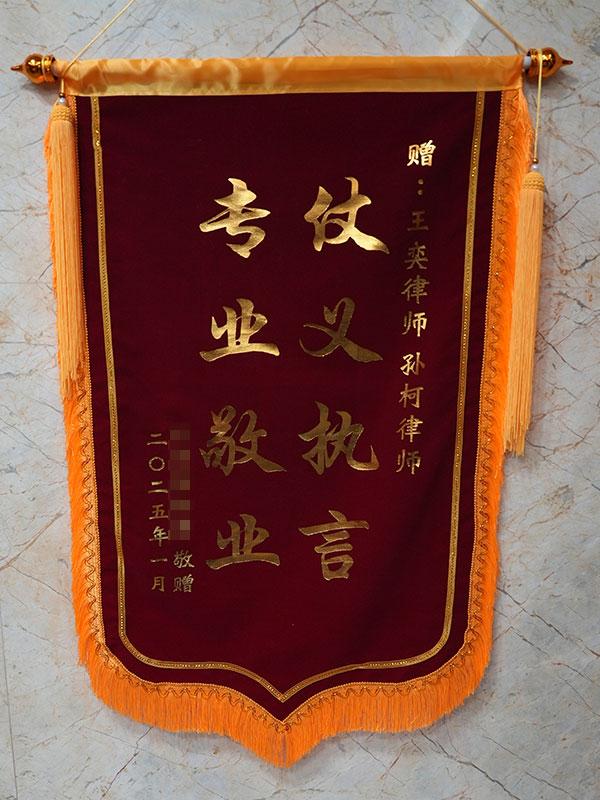 赠：王奕律师 孙柯律师
仗义执言
专业敬业
敬赠
二〇二五年一月